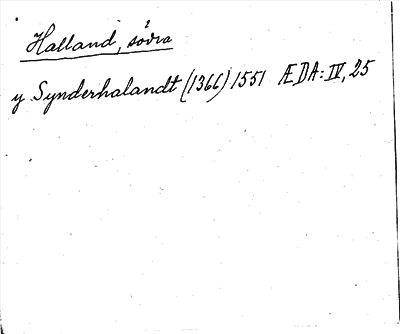 Halland, södra
y Synderhalandt (1366) 1551 ÆDA: IV, 25